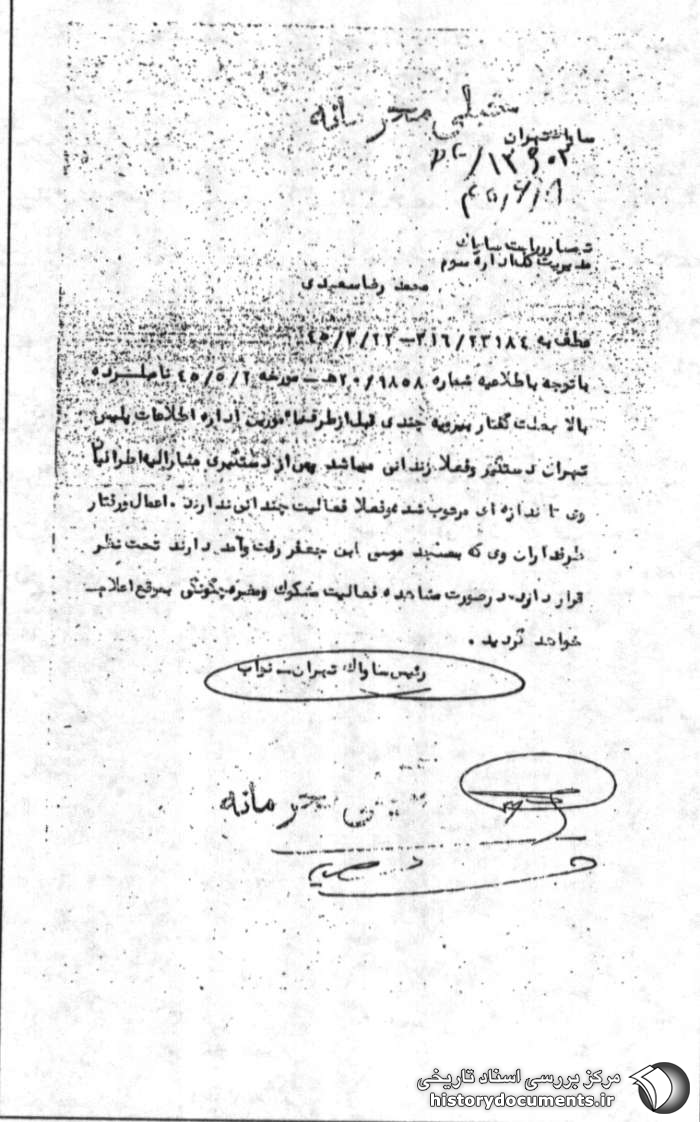 خیلی محرمانه
ساواک تهران
تیمسار ریاست ساواک
مدیریت کل اداره سوم
محمد رضا سعیدی
عطف به ۳۱۶/۲۳۱۸۴ – ۴۵/۳/۲۳
باتوجه باطلاعیه شماره ۲۰/۹۸۵۸هـ – مورخه ۴۵/۵/۲ نامبرده
بالا بعلت گفتار بیرویه چندی قبل از طرف مأمورین اداره اطلاعات پلیس
تهران دستگیر و فعلا زندانی میباشد پس از دستگیری مشارالیه اطرافیان
وی تا اندازه ای مرعوب شده و فعلا فعالیت چندانی ندارند . اعمال و رفتار
طرفداران وی که بمسجد موسی ابن جعفر رفت و آمد دارند تحت نظر
قرار دارد. در صورت مشاهده فعالیت مشکوک و مضره چگونگی بموقع اعلام
خواهد گردید .
رئیس ساواک تهران – نواب
خیلی محرمانه
مرکز بررسی اسناد تاریخی
historydocuments.ir